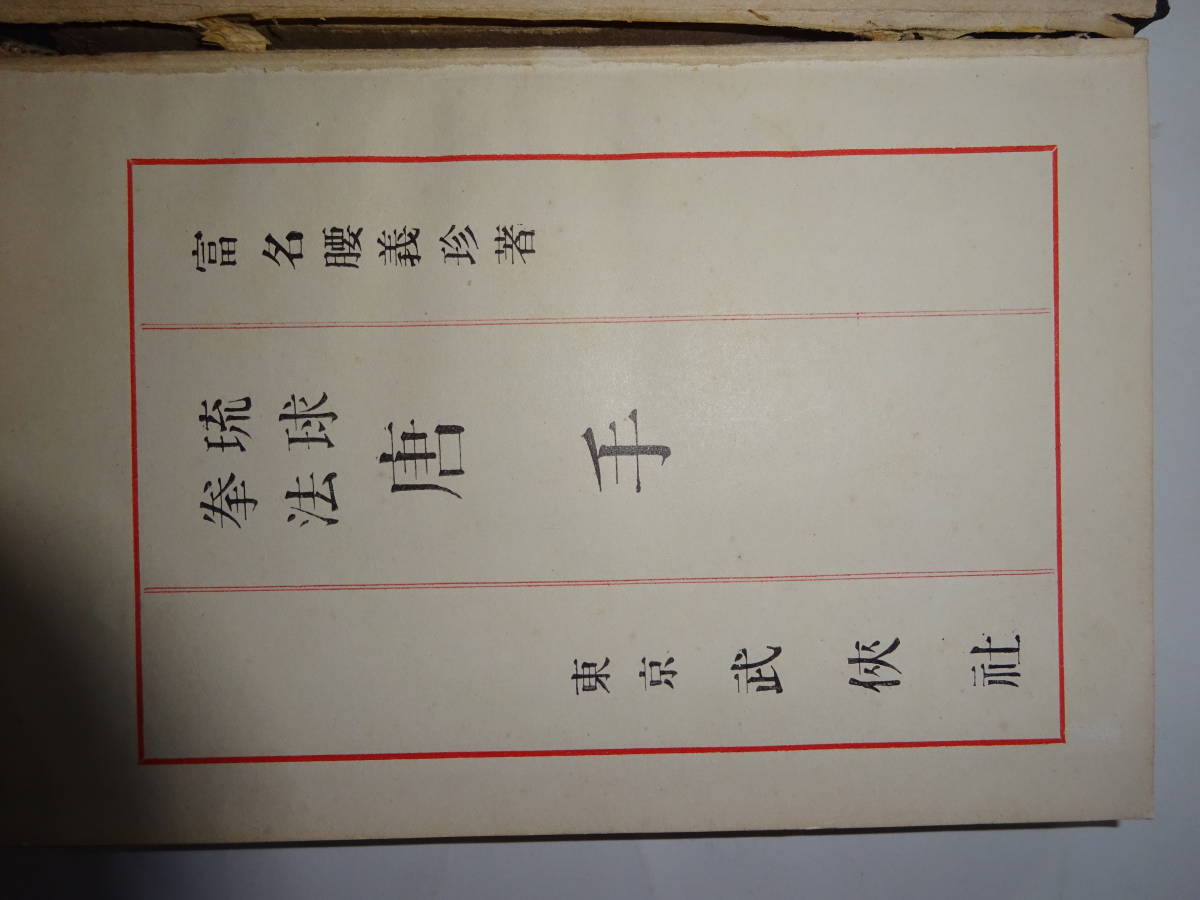 富名腰義珍著
琉球
拳法
唐手
東京 武俠社